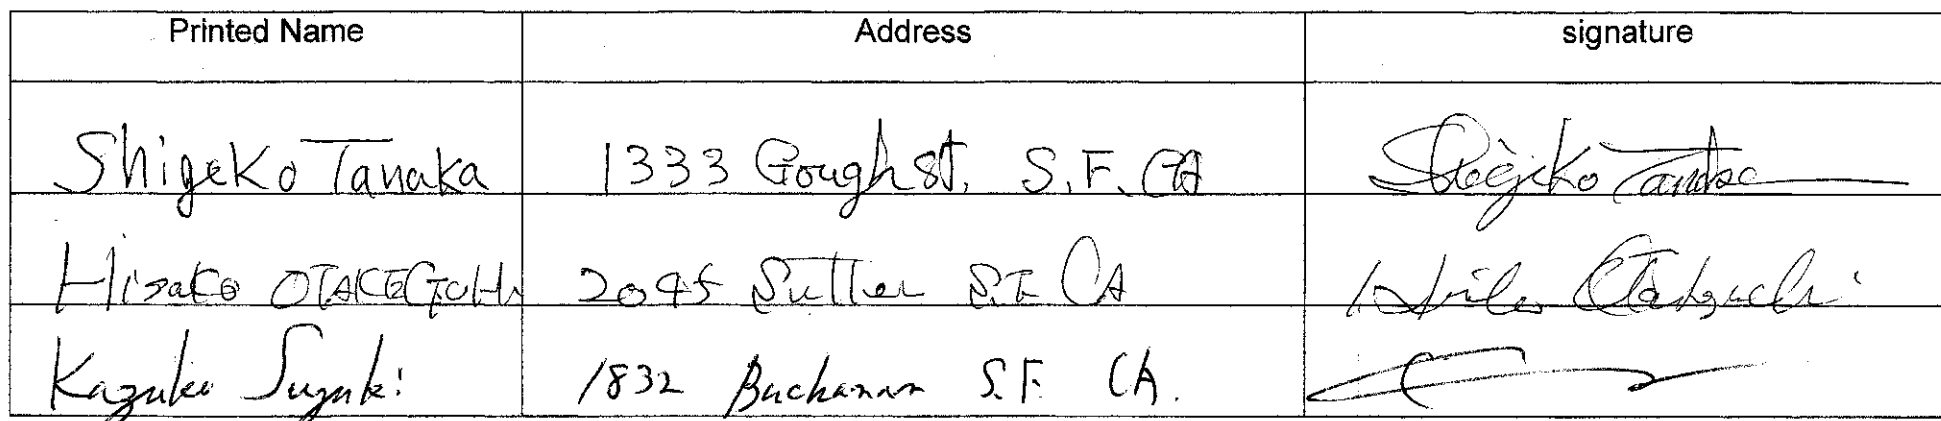 Printed Name Address signature
Shigeko Tanaka 1333 Gough St. S.F. CA Shigeko Tanaka
Hisako OTAKEGUCHI 2045 Sutter S.F. CA Otakeguchi
Kazuko Suzuki 1832 Buchanan S.F. CA.